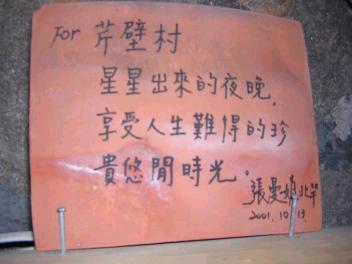 For 芹壁村
星星出來的夜晚,
享受人生難得的珍
貴悠閒時光。
張曼娟 北竿
2001.10.13